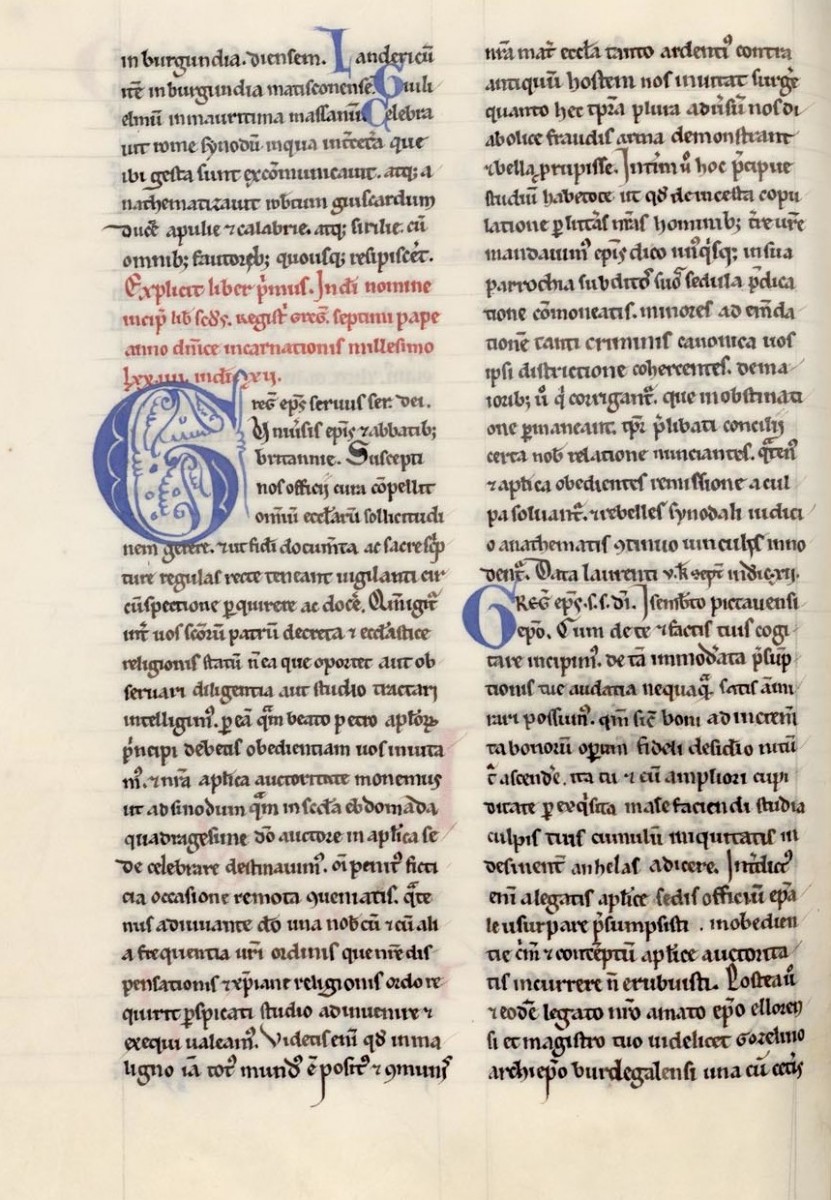 in burgundia. diensem. Landericū
itē in burgundia matisconensē. Guili
elmū in mauritima massanū. Celebra
uit rome synodū. in qua int̄ cet̄a que
ibi gesta sunt excōmunicauit. atq; a
nathematizauit rob̄tum guiscardum
ducē apulie ⁊ calabrie. atq; sicilie. cū
omnib; fautorib; quousq; resipiscēt.
Explicit liber p̄mus. In dī nomine
incip̄ lib̄ scd̄s. Regist̄ Greḡ. septimi pape
anno dn̄ice incarnationis millesimo
lxxiiii. indic̄. xii.
Greḡ ep̄s seruus ser. dei.
Uniūsis ep̄is ⁊ abbatib;
britannie. Suscepti
nos officii cura cōpellit
omniū eccl̄arū sollicitudi
nem gerere. ⁊ ut fidī documn̄ta ac sacre sc̄p
ture regulas recte teneant uigilanti cir
cūspectione ꝑquirere ac docē. Qm̄ igit᷑
int̄ uos sc̄orū patrū decreta ⁊ eccl̄iastice
religionis statū n̄ ea que oportet aut ob
seruari diligentia aut studio tractari
intelligimꝰ. ꝑ eā qm̄ beato petro apl̄oꝝ
p̄ncipi debetis obedientiam uos inuita
mꝰ. ⁊ nr̄a apl̄ica auctoritate monemus
ut ad sinodum qm̄ in sc̄d̄a ebdomada
quadragesime dō auctore in apl̄ica se
de celebrare destinauimꝰ. oī penitꝰ ficti
cia occasione remota ꝯueniatis. q̄te
nus adiuuante dō una nobcū ⁊ cū ali
a frequentia ur̄i ordinis que nr̄e dis
pensationis ⁊ xp̄iane religionis ordo re
quirit ꝑspicati studio ad inuenire ⁊
exequi ualeamꝰ. Videtis enī qd̄ in ma
ligno iā totꝰ mundꝰ ē positꝰ ⁊ ꝯmunis
nr̄a mat̄ eccl̄a tanto ardentiꝰ contra
antiquū hostem nos inuitat surgē
quanto hec tp̄ra plura adūsū nos di
abolice fraudis arma demonstrant
⁊ bella ꝓrupisse. Int̄im ū hoc p̄cipue
studiū habetote ut qd̄ de incesta copu
latione ꝑ litt̄as nr̄as hominib; t̄re ur̄e
mandauimꝰ ep̄is dico un̄qisq; in sua
parrochia subditos suos sedula p̄dica
tione cōmoneatis. minores ad emd̄a
tionē tanti criminis canonica uos
ipsi districtione cohercentes. de ma
iorib; ū q̇ corrigant᷑. que in obstinati
one ꝑmaneant. tp̄r p̄libati concilii
certa nob̄ relatione nunciantes. q̄tenꝰ
⁊ apl̄ica obedientes remissione a cul
pa soluant᷑. ⁊ rebelles synodali iudici
o anathematis ꝯtinuo uinculis inno
dent᷑. Data laurenti v. k̄. sept̄. indic̄. xii.
Greḡ ep̄s. s. s. dī. Isemb̄to pictauensi
ep̄o. Cum de te ⁊ factis tuis cogi
tare incipimꝰ. de tā immod̄ata p̄sūp
tionis tue audatia nequaq̄ satis am̄i
rari possumꝰ. qm̄ sic̄ boni ad increm̄
ta bonorū operum fideli desid̄io nitū
t᷑ ascendē. ita tu ⁊ cū ampliori cupi
ditate ꝑ exq̇sita male faciendi studia
culpis tuis cumulū iniquitatis in
desinent̄ anhelas adicere. Int̄dictꝰ
enī a legatis apl̄ice sedis officiū ep̄a
le usurpare p̄sumpsisti. inobedien
tie crīm ⁊ contēptū apl̄ice auctorita
tis incurrere n̄ erubuisti. Postea ū
⁊ eodē legato nr̄o amato ep̄o elloren
si et magistro tuo uidelicet Gozelino
archiep̄o burdegalensi una cū cetīs